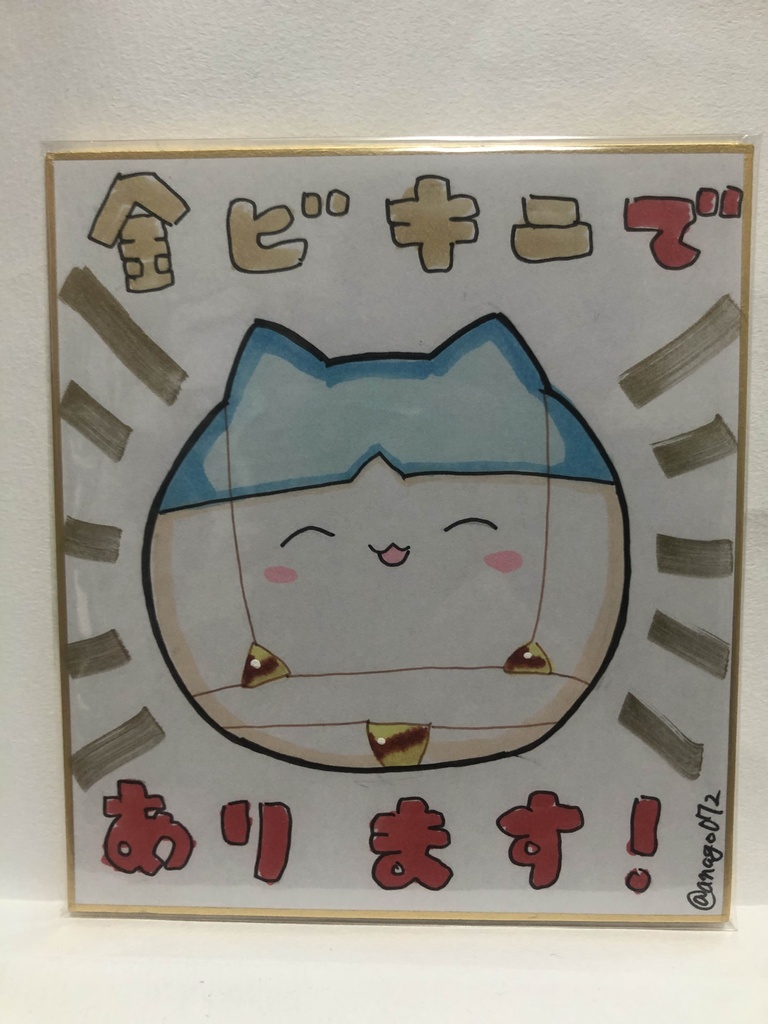 金ビキニで
あります!
@anago072